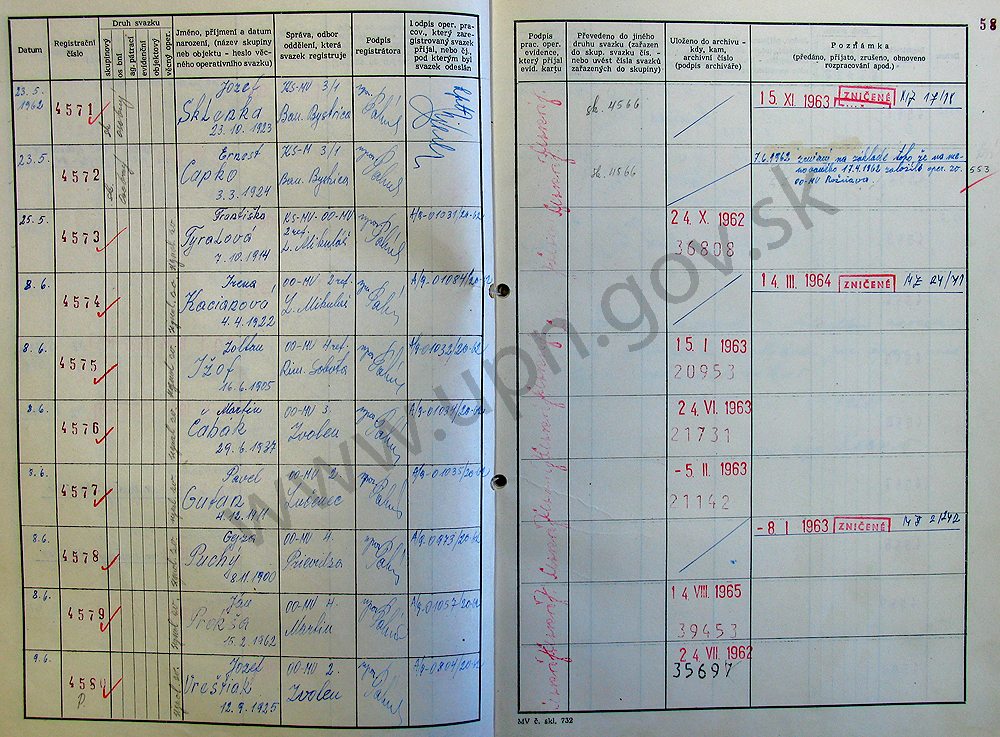 58
Datum
Registrační číslo
Druh svazku
skupinový
osobní
ag. pátrací
evidenční
objektový
věcný oper.
Jméno, příjmení a datum
narození, (název skupiny
neb objektu - heslo věc-
ného operativního svazku)
Správa, odbor
oddělení, která
svazek registruje
Podpis
registrátora
Podpis oper. pra-
cov., který zare-
gistrovaný svazek
přijal, nebo čj.
pod kterým byl
svazek odeslán
Podpis
prac. oper.
evidence,
který přijal
evid. kartu
Převedeno do jiného
druhu svazku (zařazen
do skup. svazku čís., -
nebo uvést čísla svazků
zařazených do skupiny)
Uloženo do archivu -
kdy, kam,
archivní číslo
(podpis archiváře)
Poznámka
(předáno, přijato, zrušeno, obnoveno
rozpracování apod.)
23. 5.
1962
4571
Jozef
Sklenka
23. 10. 1923
KS-MV 3/1
Ban. Bystrica
sk. 4566
15. XI. 1963
ZNIČENÉ
23. 5.
4572
Ernest
Capko
3. 3. 1924
KS-M 3/1
Ban. Bystrica
sk. 4566
7. 6. 1962 zrušený na základe toho že na me-
novaného 17. 4. 1962 založilo oper. zv. 553
OO-MV Rožňava.
25. 5.
4573
Františka
Tyralová
7. 10. 1914
KS-MV-OO-MV
2 ref.
L. Mikuláš
A/9-01031/20-62
24. X. 1962
36808
8. 6.
4574
Irena
Kacianová
4. 4. 1922
OO-MV 2 ref.
L. Mikuláš
14. III. 1964
ZNIČENÉ
8. 6.
4575
Zoltan
Ižof
16. 6. 1905
OO-MV 4 ref.
Rim. Sobota
A/9-01032/20-62
15. I 1963
20953
8. 6.
4576
Martin
Cabák
29. 6. 1937
OO-MV 3.
Zvolen
A/9-01034/20-62
24. VI. 1963
21731
8. 6.
4577
Pavel
Gutan
4. 12. 1911
OO-MV 2.
Lučenec
A/9-01035/20-62
-5. II. 1963
21142
8. 6.
4578
Gejza
Puchý
8. 11. 1900
OO-MV 4.
Prievidza
A/9-0973/20-62
-8. I 1963
ZNIČENÉ
8. 6.
4579
Ján
Prokša
15. 2. 1962
OO-MV 4.
Martin
A/9-01057/20-62
14 VIII. 1965
39453
9. 6.
4580
P.
Jozef
Vreštiak
12. 9. 1925
OO-MV 2.
Zvolen
A/9-0804/20-62
24 VII. 1962
35697
MV č. skl. 732
www.upn.gov.sk